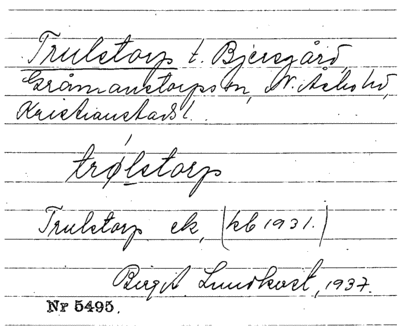 Trulstorp t. Bjersgård
Gråmanstorps sn, N. Åsbo hd,
Kristianstads l.
trǿlstorp
Trulstorp ek, (kb 1931.)
Birgit Lundkvist, 1937.
Nr 5495.